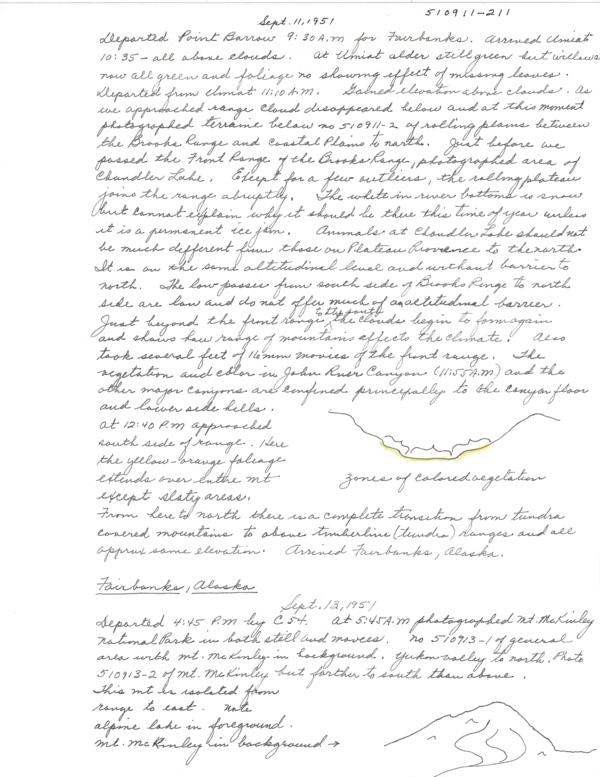 510911-211
Sept. 11, 1951
Departed Point Barrow 9:30 A.M for Fairbanks. Arrived Umiat
10:35 - all above clouds. At Umiat alder still green but willows
now all green and foliage no showing effect of missing leaves.
Departed from Umiat 11:10 A.M. Gained elevation above clouds. As
we approached range cloud disappeared below and at this moment
photographed terraine below no 510911-2 of rolling plains between
the Brooks Range and Coastal Plains to north. Just before we
passed the Front Range of the Brooks Range, photographed area of
Chandler Lake. Except for a few outliers, the rolling plateau
joins the range abruptly. The white in river bottoms is snow
but cannot explain why it should be there this time of year unless
it is a permanent ice jam. Animals at Chandler Lake should not
be much different from those on Plateau Provence to the north.
It is on the same altitudinal level and without barrier to
north. The low passes from south side of Brooks Range to north
side are low and do not offer much of an altitudinal barrier.
Just beyond the front range to the south the clouds begin to form again
and shows how range of mountains effects the climate. Also
took several feet of 16mm movies of the front range. The
vegetation and color in John River Canyon (11:55 A.M) and the
other major canyons are confined principally to the canyon floor
and lower side hills.
At 12:40 P.M approached
south side of range. Here
the yellow-orange foliage
extends over entire mt
except slaty areas.
zones of colored vegetation
From here to north there is a complete transition from tundra
covered mountains to above timberline (tundra) ranges and all
approx same elevation. Arrived Fairbanks, Alaska.
Fairbanks, Alaska
Sept. 13, 1951
Departed 4:45 P.M by C54. At 5:45 A.M photographed Mt. McKinley
National Park in both still and movies. No 510913-1 of general
area with Mt. McKinley in background. Yukon valley to north. Photo
510913-2 of Mt. McKinley but farther to south than above.
This mt is isolated from
range to east. Note
alpine lake in foreground.
Mt. McKinley in background →